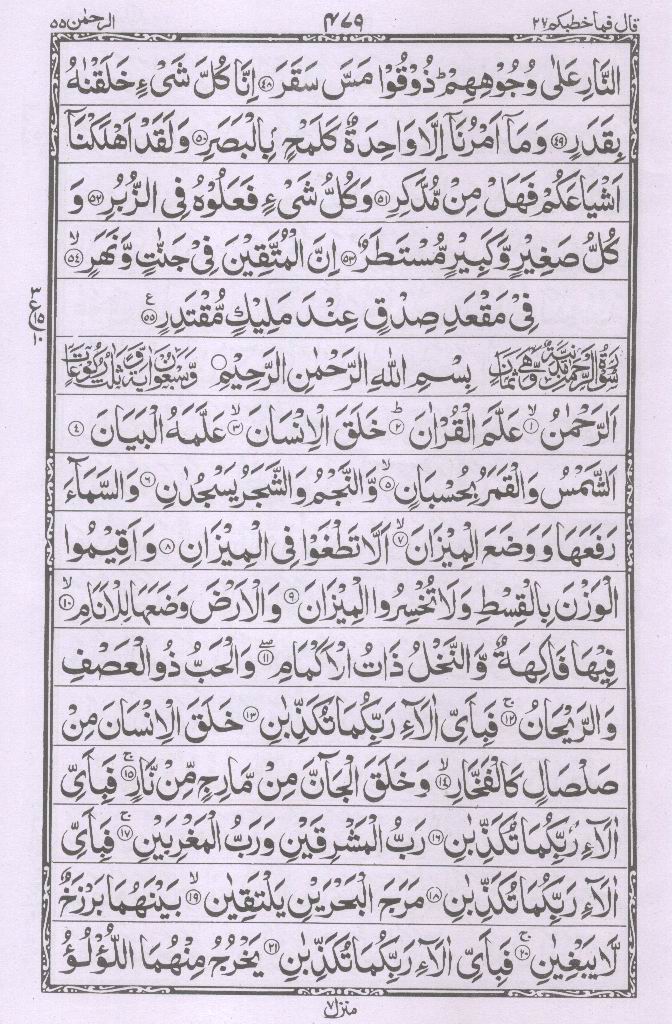 قال فما خطبكم ٢٧ ٤٧٩ الرحمٰن ٥٥
النَّارِ عَلٰى وُجُوْهِهِمْ ؕ ذُوْقُوْا مَسَّ سَقَرَ ﴿٤٨﴾ اِنَّا كُلَّ شَیْءٍ خَلَقْنٰهُ
بِقَدَرٍ ﴿٤٩﴾ وَمَاۤ اَمْرُنَاۤ اِلَّا وَاحِدَةٌ كَلَمْحٍۭ بِالْبَصَرِ ﴿٥٠﴾ وَلَقَدْ اَهْلَكْنَاۤ
اَشْيَاعَكُمْ فَهَلْ مِنْ مُّدَّكِرٍ ﴿٥١﴾ وَكُلُّ شَیْءٍ فَعَلُوْهُ فِی الزُّبُرِ ﴿٥٢﴾ وَ
كُلُّ صَغِيْرٍ وَّكَبِيْرٍ مُّسْتَطَرٌ ﴿٥٣﴾ اِنَّ الْمُتَّقِيْنَ فِیْ جَنّٰتٍ وَّنَهَرٍ ۙ﴿٥٤﴾
فِیْ مَقْعَدِ صِدْقٍ عِنْدَ مَلِيْكٍ مُّقْتَدِرٍ ﴿٥٥﴾ ع
سُوْرَةُ الرَّحْمٰنِ مَدَنِيَّةٌ وَّهِیَ ثَمَانٌ بِسْمِ اللهِ الرَّحْمٰنِ الرَّحِيْمِ وَّسَبْعُوْنَ اٰيَةً وَّثَلٰثُ رُكُوْعَاتٍ
اَلرَّحْمٰنُ ۙ﴿١﴾ عَلَّمَ الْقُرْاٰنَ ؕ﴿٢﴾ خَلَقَ الْاِنْسَانَ ۙ﴿٣﴾ عَلَّمَهُ الْبَيَانَ ﴿٤﴾
اَلشَّمْسُ وَالْقَمَرُ بِحُسْبَانٍ ۙ﴿٥﴾ وَّالنَّجْمُ وَالشَّجَرُ يَسْجُدٰنِ ﴿٦﴾ وَالسَّمَآءَ
رَفَعَهَا وَوَضَعَ الْمِيْزَانَ ۙ﴿٧﴾ اَلَّا تَطْغَوْا فِی الْمِيْزَانِ ﴿٨﴾ وَاَقِيْمُوا
الْوَزْنَ بِالْقِسْطِ وَلَا تُخْسِرُوا الْمِيْزَانَ ﴿٩﴾ وَالْاَرْضَ وَضَعَهَا لِلْاَنَامِ ۙ﴿١٠﴾
فِيْهَا فَاكِهَةٌ وَّالنَّخْلُ ذَاتُ الْاَكْمَامِ ۖ﴿١١﴾ وَالْحَبُّ ذُو الْعَصْفِ
وَالرَّيْحَانُ ۚ﴿١٢﴾ فَبِاَیِّ اٰلَآءِ رَبِّكُمَا تُكَذِّبٰنِ ﴿١٣﴾ خَلَقَ الْاِنْسَانَ مِنْ
صَلْصَالٍ كَالْفَخَّارِ ۙ﴿١٤﴾ وَخَلَقَ الْجَآنَّ مِنْ مَّارِجٍ مِّنْ نَّارٍ ۚ﴿١٥﴾ فَبِاَیِّ
اٰلَآءِ رَبِّكُمَا تُكَذِّبٰنِ ﴿١٦﴾ رَبُّ الْمَشْرِقَيْنِ وَرَبُّ الْمَغْرِبَيْنِ ۚ﴿١٧﴾ فَبِاَیِّ
اٰلَآءِ رَبِّكُمَا تُكَذِّبٰنِ ﴿١٨﴾ مَرَجَ الْبَحْرَيْنِ يَلْتَقِيٰنِ ۙ﴿١٩﴾ بَيْنَهُمَا بَرْزَخٌ
لَّا يَبْغِيٰنِ ۚ﴿٢٠﴾ فَبِاَیِّ اٰلَآءِ رَبِّكُمَا تُكَذِّبٰنِ ﴿٢١﴾ يَخْرُجُ مِنْهُمَا اللُّؤْلُؤُ
منزل ٧
٣
ع ١٥
١٠